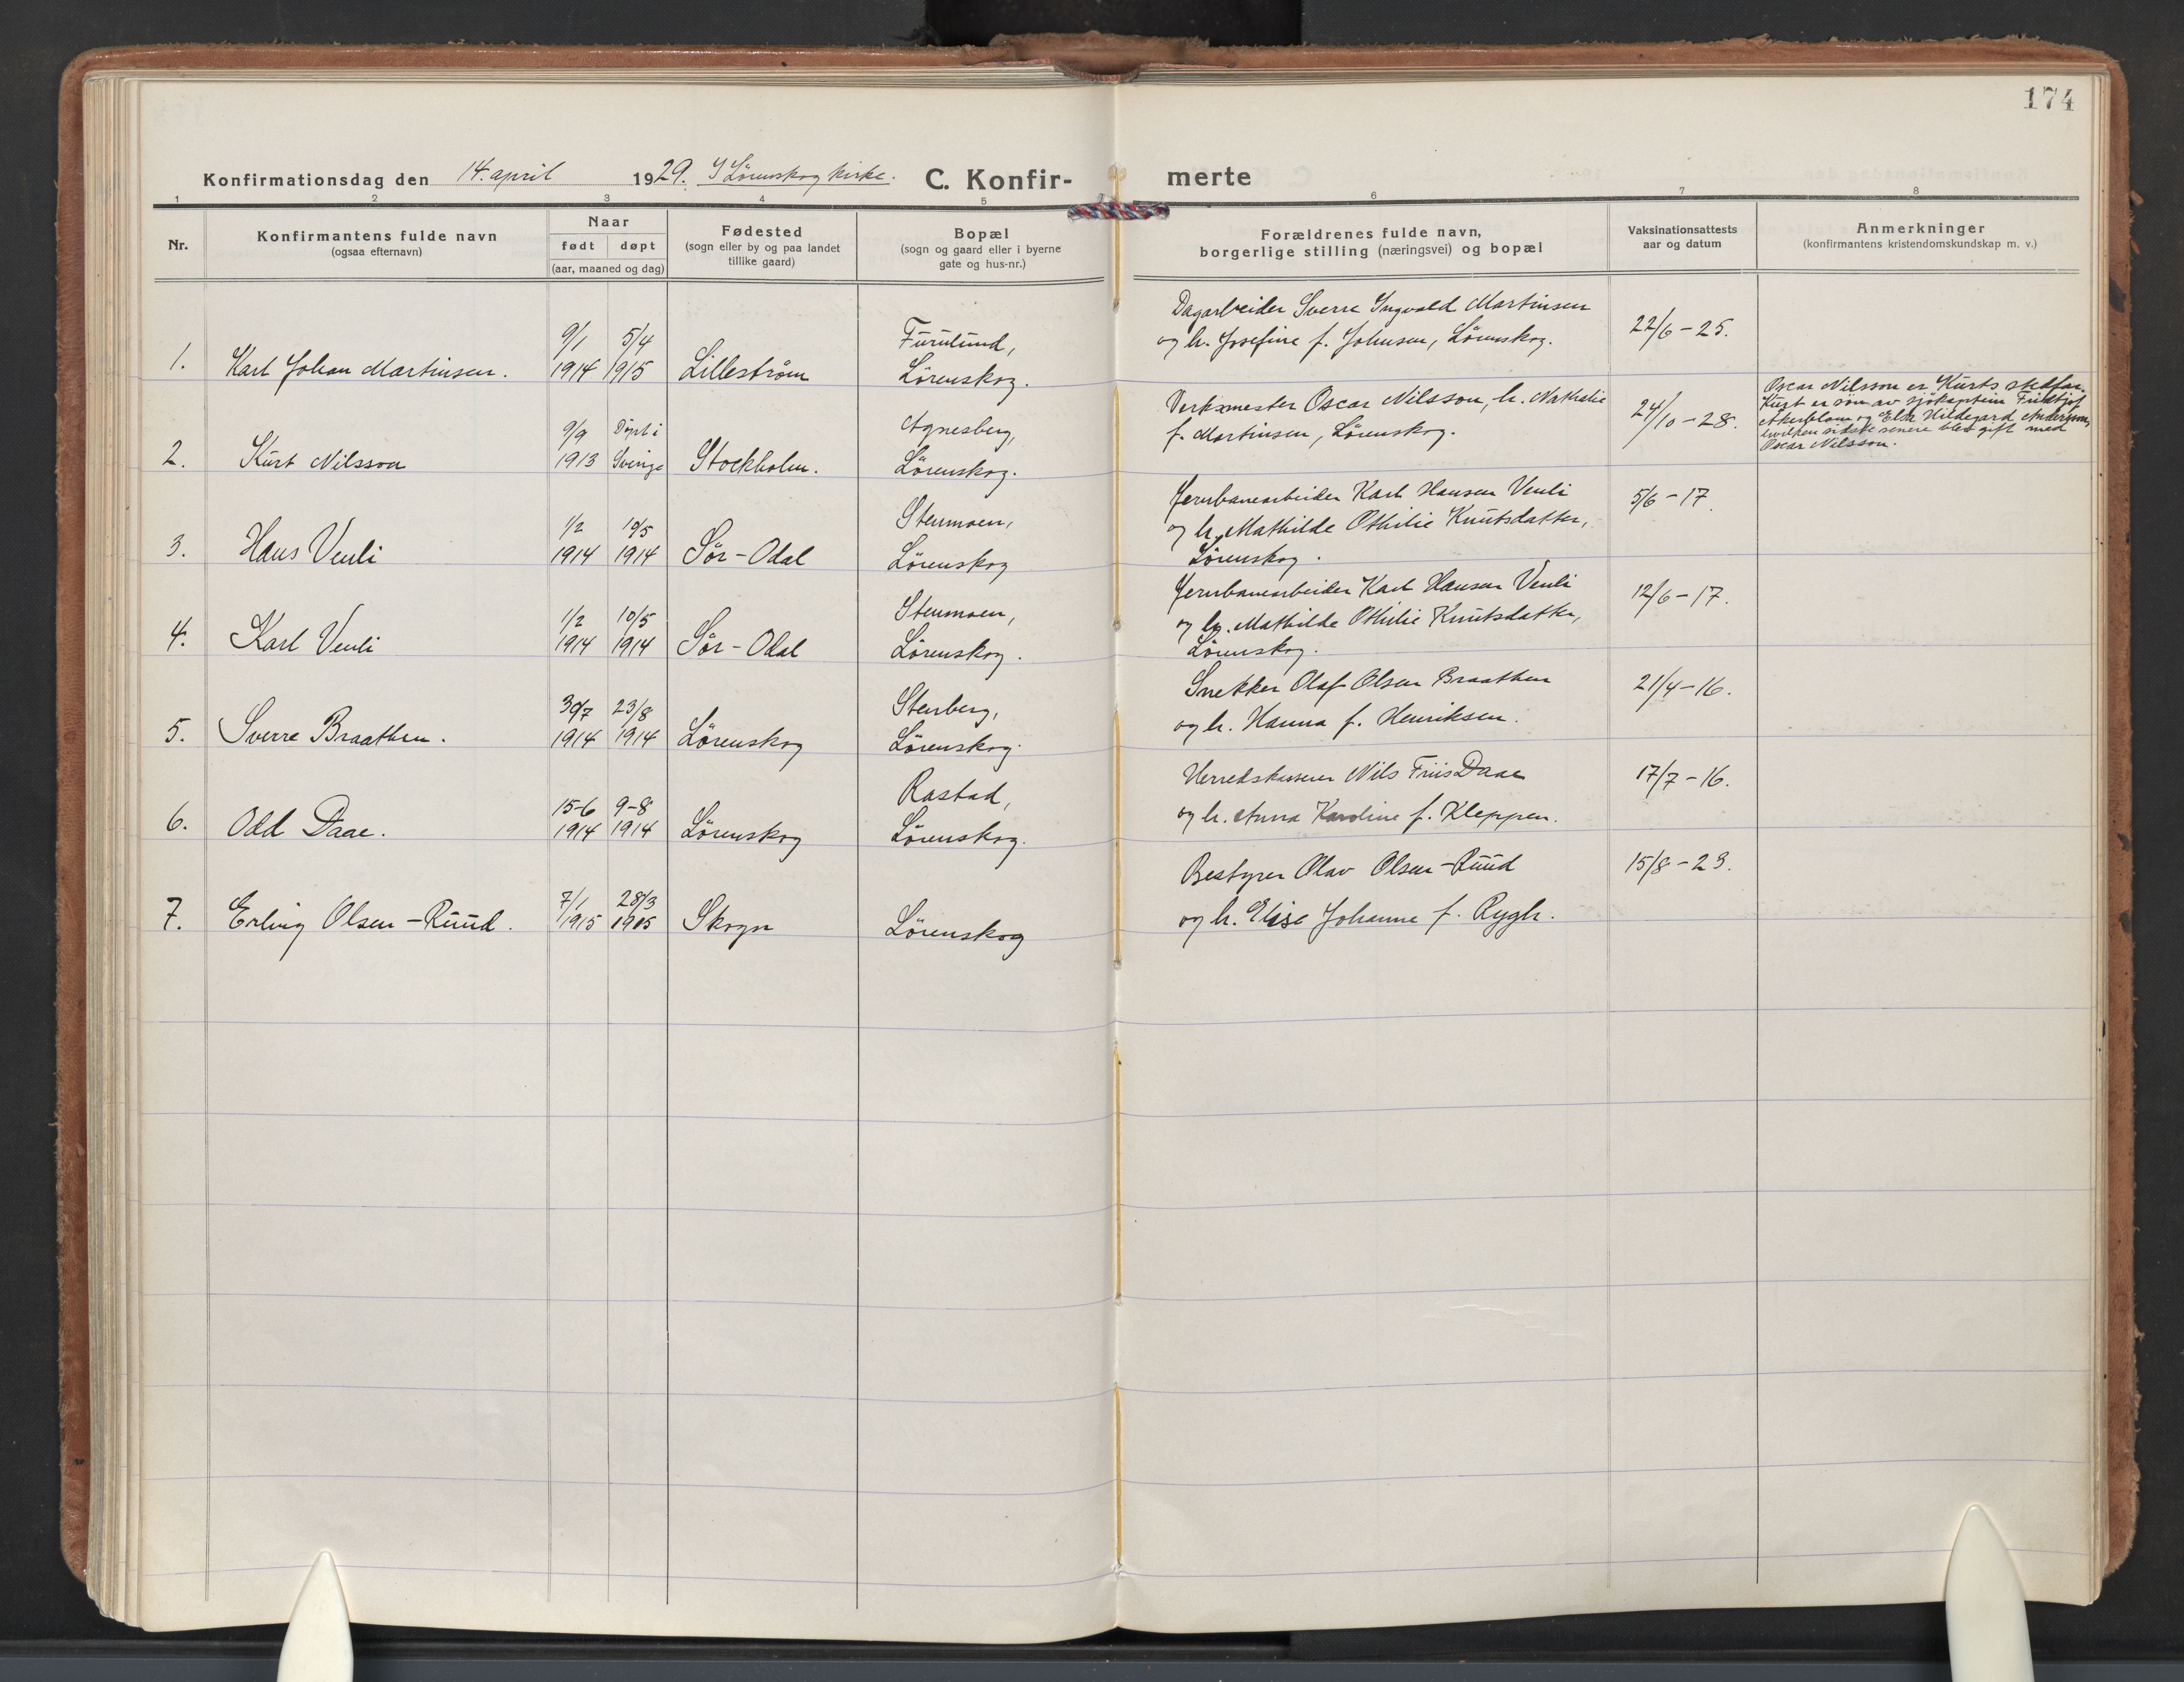 174
Konfirmationsdag den 14. april 1929. I Lörenskog kirke. C. Konfir- merte
1 2 3 4 5 6 7 8
Nr.
Konfirmantens fulde navn
(ogsaa efternavn)
Naar
født døpt
(aar, maaned og dag)
Fødested
(sogn eller by og paa landet
tillike gaard)
Bopæl
(sogn og gaard eller i byerne
gate og hus-nr.)
Forældrenes fulde navn,
borgerlige stilling (næringsvei) og bopæl
Vaksinationsattests
aar og datum
Anmerkninger
(konfirmantens kristendomskundskap m. v.)
9/1 5/4 Furulund, Dagarbeider Sverre Ingvald Martinsen
1. Karl Johan Martinsen. 1914 1915 Lilleström Lörenskog. og h. Josefine f. Johnsen, Lörenskog. 22/6 - 25.
9/9 Döpt i Agnesberg, Verksmester Oscar Nilsson, h. Nathalie
2. Kurt Nilsson 1913 Sverige Stockholm. Lörenskog. f. Martinsen, Lörenskog. 24/10 - 28.
Oscar Nilsson er Kurts stedfar.
Kurt er sön av sjökaptein Fridtjof
Åkerblom og Elsa Hildegard Andersson,
hvilken sidste senere blev gift med
Oscar Nilsson.
1/2 10/5 Stenmoen, Jernbanearbeider Karl Hansen Venli 5/6 - 17.
3. Hans Venli 1914 1914 Sör-Odal Lörenskog og h. Mathilde Othilie Knutsdatter,
Lörenskog.
1/2 10/5 Stenmoen, Jernbanearbeider Karl Hansen Venli 12/6 - 17.
4. Karl Venli 1914 1914 Sör-Odal Lörenskog. og h. Mathilde Othilie Knutsdatter,
Lörenskog.
30/7 23/8 Stenberg, Snekker Olaf Olsen Braathen 21/4 - 16.
5. Sverre Braathen. 1914 1914 Lörenskog Lörenskog. og h. Hanna f. Henriksen.
15-6 9-8 Rastad, Herredskasserer Nils Friis Daae 17/7 - 16.
6. Odd Daae. 1914 1914 Lörenskog Lörenskog. og h. Anna Karoline f. Kleppen.
7/1 28/3 Bestyrer Olav Olsen-Ruud 15/8 - 23.
7. Erling Olsen-Ruud. 1915 1915 Skogn Lörenskog og h. Elise Johanne f. Rygh.